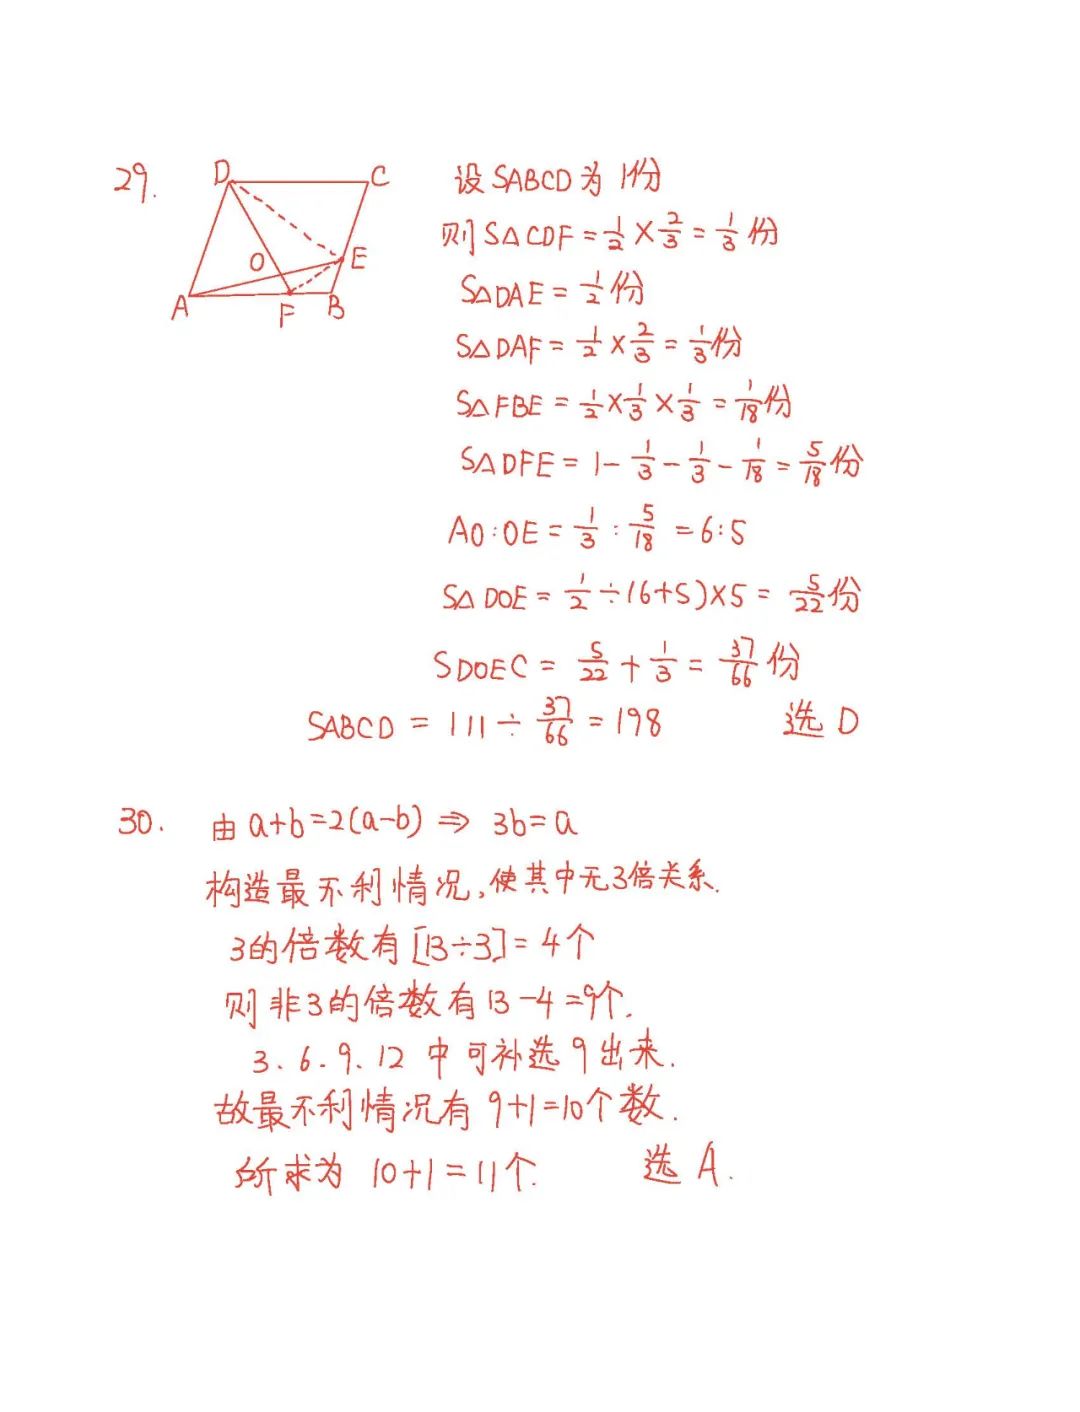 29.
D C
O E
A F B
设SABCD为1份
则S△CDF=1/2×2/3=1/3份
S△DAE=1/2份
S△DAF=1/2×2/3=1/3份
S△FBE=1/2×1/3×1/3=1/18份
S△DFE=1-1/3-1/3-1/18=5/18份
AO:OE=1/3:5/18=6:5
S△DOE=1/2÷(6+5)×5=5/22份
SDOEC=5/22+1/3=37/66份
SABCD=111÷37/66=198 选D
30. 由a+b=2(a-b)⇒3b=a
构造最不利情况,使其中无3倍关系.
3的倍数有[13÷3]=4个
则非3的倍数有13-4=9个.
3.6.9.12中可补选9出来.
故最不利情况有9+1=10个数.
所求为10+1=11个. 选A.